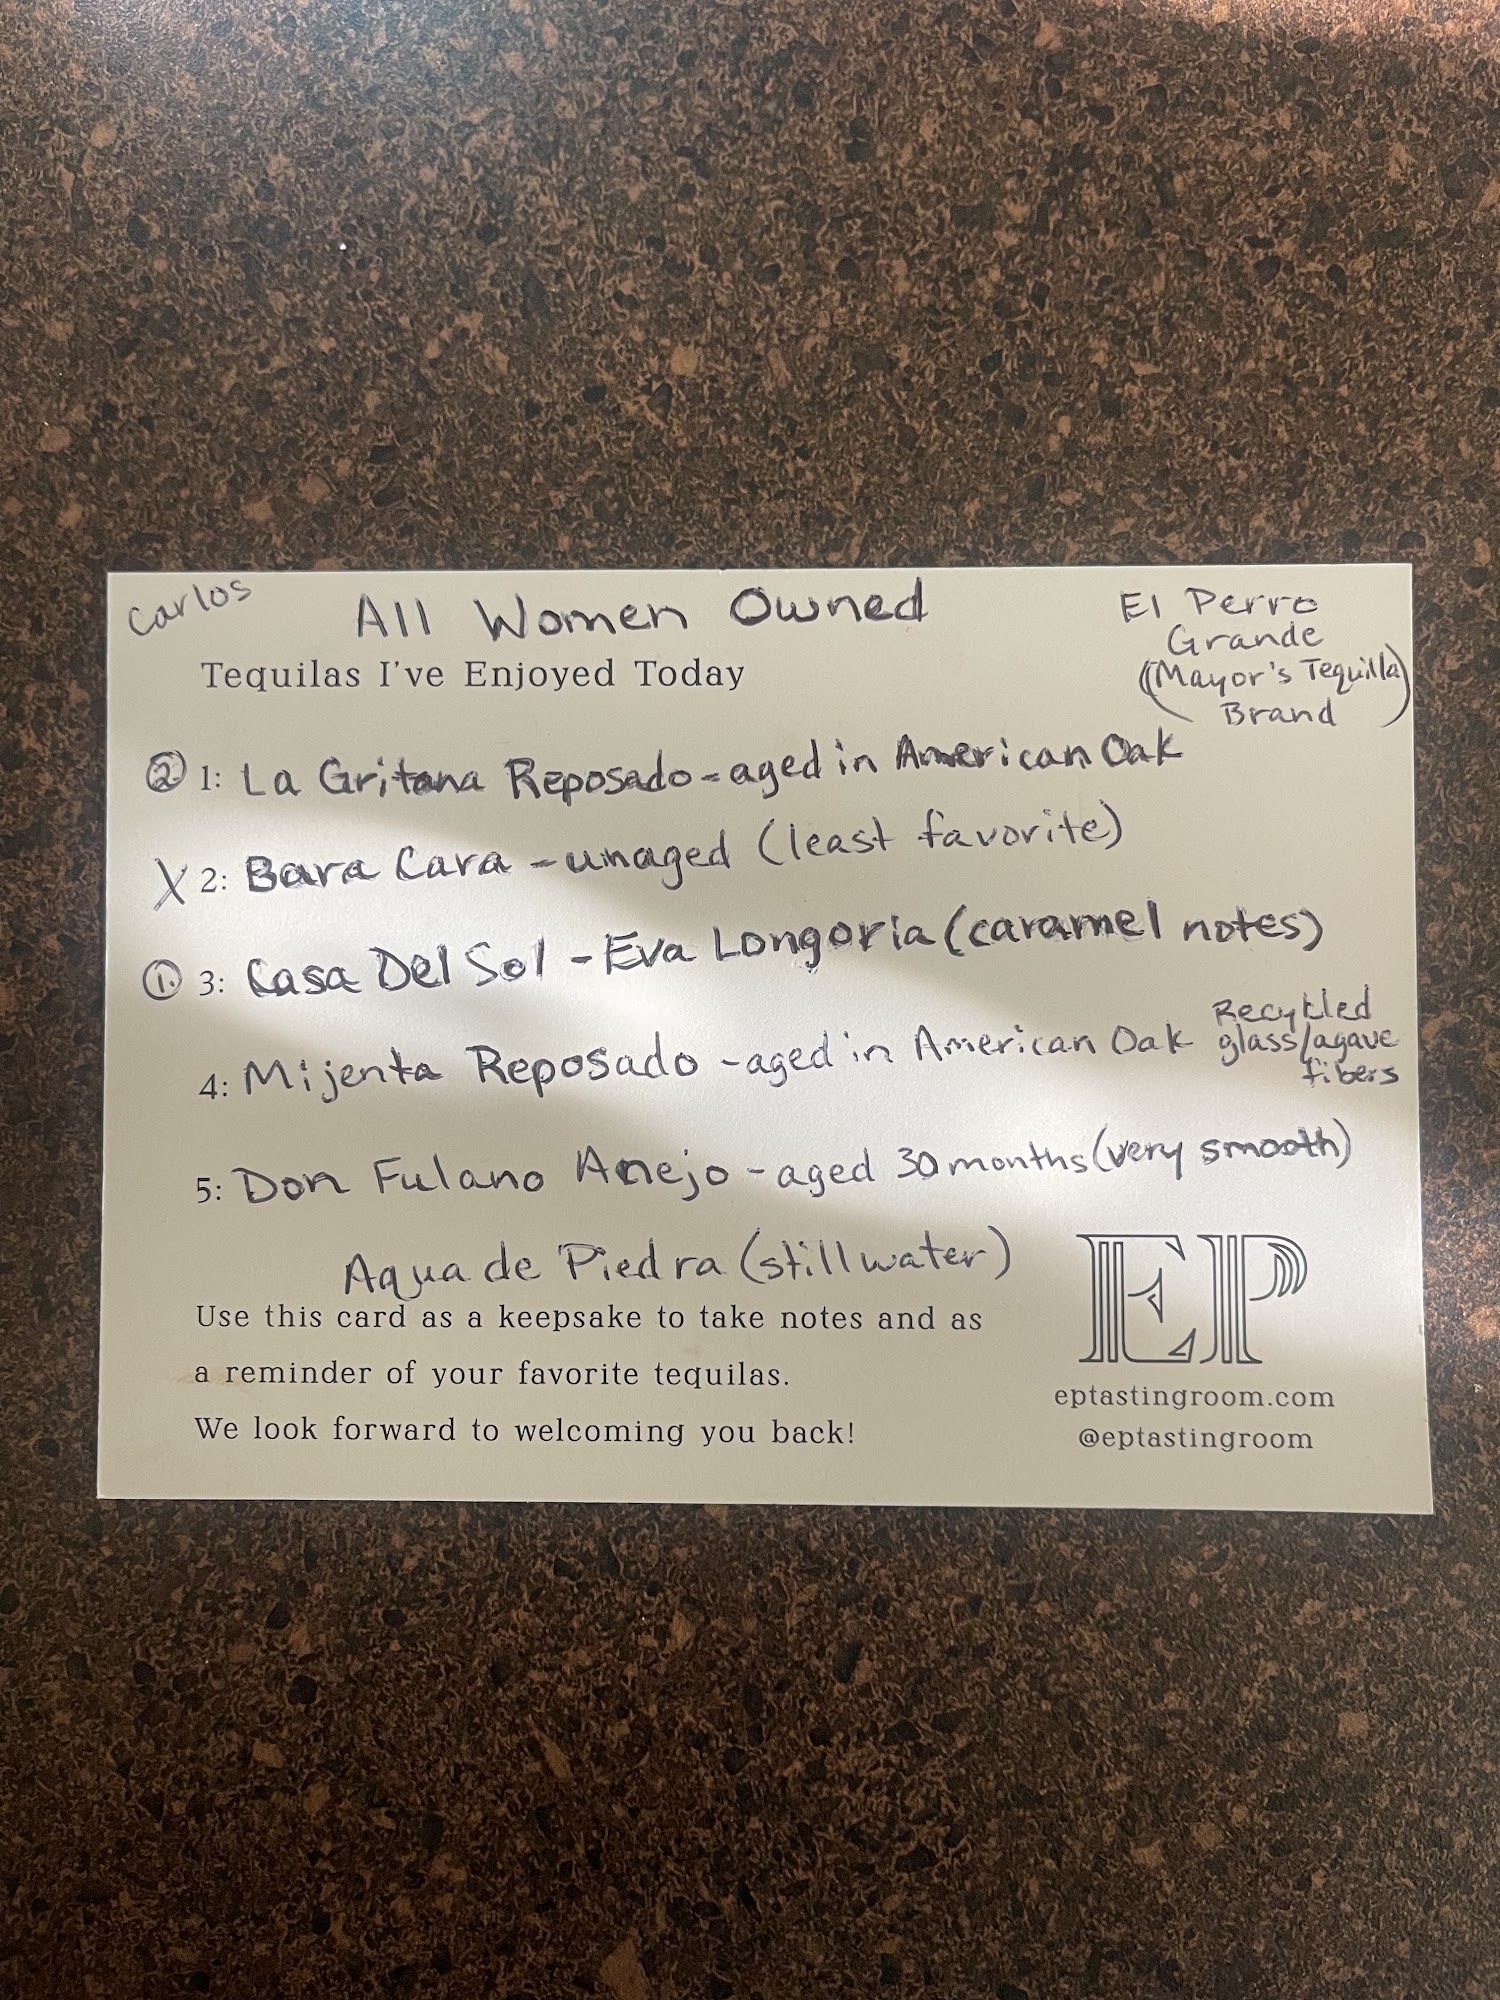 Carlos
All Women Owned
El Perro
Grande
(Mayor's Tequilla
Brand)
Tequilas I've Enjoyed Today
② 1: La Gritona Reposado - aged in American Oak
X 2: Bara Cara - unaged (least favorite)
① 3: Casa Del Sol - Eva Longoria (caramel notes)
4: Mijenta Reposado - aged in American Oak
Recykled
glass/agave
fibers
5: Don Fulano Anejo - aged 30 months (very smooth)
Aqua de Piedra (still water)
Use this card as a keepsake to take notes and as
a reminder of your favorite tequilas.
We look forward to welcoming you back!
EP
eptastingroom.com
@eptastingroom